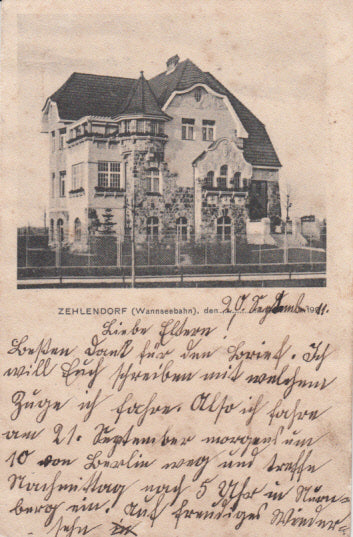 ZEHLENDORF (Wannseebahn), den 20 Septemb. 1911.
Liebe Eltern
Besten Dank für den Brief. Ich
will Euch schreiben mit welchem
Zuge ich fahre. Also ich fahre
am 21. September morgens um
10 von Berlin weg und treffe
Nachmittag nach 5 Uhr in Nürn-
berg ein. Auf freudiges Wieder-
sehn